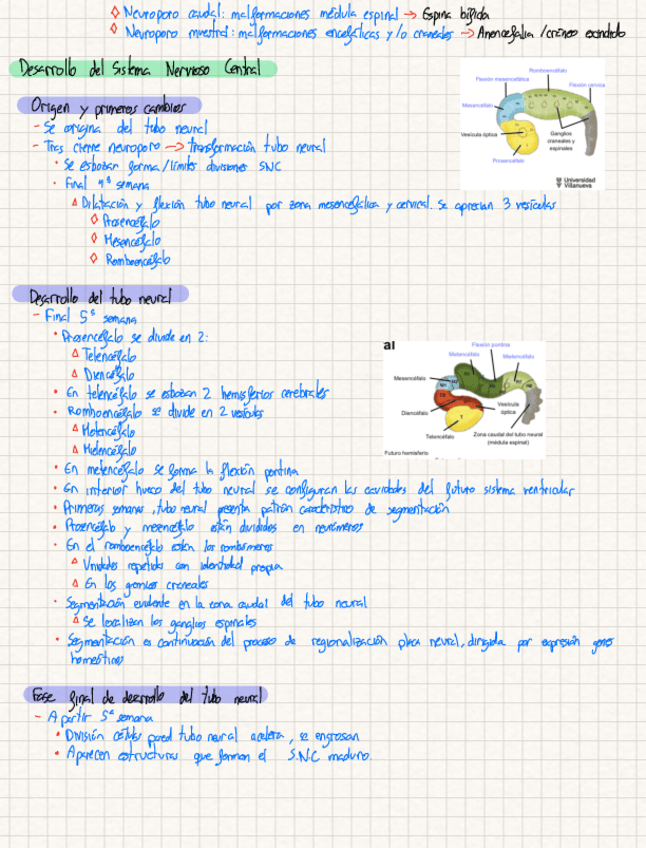 ◊ Neuroporo caudal: malformaciones médula espinal → Espina bífida
◊ Neuroporo rrostral: malformaciones encefálicas y/o craneales → Anencefalia / cráneo escindido
Desarrollo del Sistema Nervioso Central
Origen y primeros cambios
- Se origina del tubo neural
- Tras cierre neuroporo → transformación tubo neural
· Se esbozan forma/límites divisiones SNC
· Final 4ª semana
Δ Dilatación y flexión tubo neural por zona mesencefálica y cervical. Se aprecian 3 vesículas
◊ Prosencéfalo
◊ Mesencéfalo
◊ Romboencéfalo
Romboencéfalo
Flexión mesencefálica
Flexión cervical
Mesencéfalo
Vesícula óptica
Ganglios craneales y espinales
Prosencéfalo
Universidad Villanueva
Desarrollo del tubo neural
- Final 5ª semana
· Prosencéfalo se divide en 2:
Δ Telencéfalo
Δ Diencéfalo
· En telencéfalo se esbozan 2 hemisferios cerebrales
· Romboencéfalo se divide en 2 vesículas
Δ Metencéfalo
Δ Mielencéfalo
· En metencéfalo se forma la flexión pontina
· En interior hueco del tubo neural se configuran las cavidades del futuro sistema ventricular
· Primeras semanas, tubo neural presenta patrón característico de segmentación
· Prosencéfalo y mesencéfalo están divididos en neurómeros
· En el romboencéfalo están los rombómeros
Δ Unidades repetidas con identidad propia
Δ En los craneales
· Segmentación evidente en la zona caudal del tubo neural
Δ Se localizan los ganglios espinales
· Segmentación es continuación del proceso de regionalización placa neural, dirigida por expresión genes
homeóticos
a)
Flexión pontina
Metencéfalo
Mielencéfalo
Mesencéfalo
Diencéfalo
Vesícula óptica
Telencéfalo
Zona caudal del tubo neural (médula espinal)
Futuro hemisferio
Fase final de desarrollo del tubo neural
- A partir 5ª semana
· División células pared tubo neural acelera, se engrosan
· Aparecen estructuras que forman el S.N.C maduro.